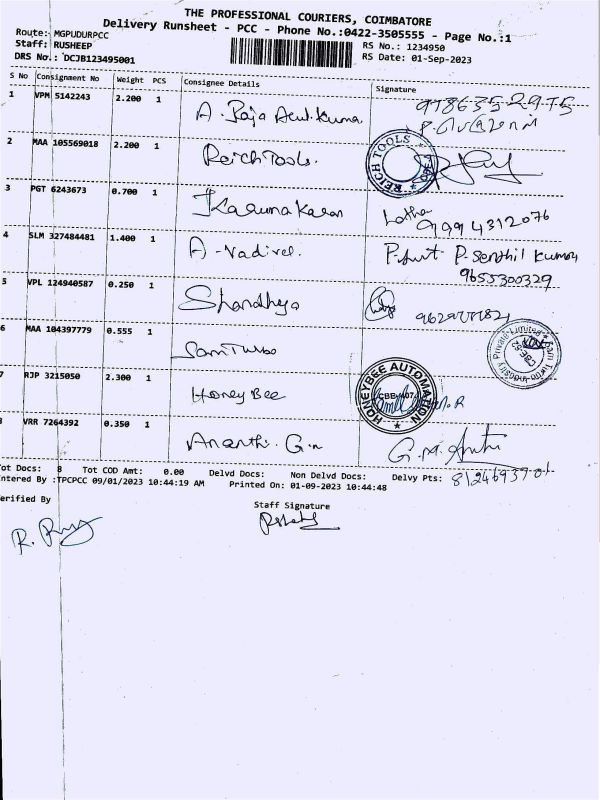 THE PROFESSIONAL COURIERS, COIMBATORE
Delivery Runsheet - PCC - Phone No.:0422-3505555 - Page No.:1
Route: MGPUDURPCC
Staff: RUSHEEP
RS No.: 1234950
DRS No.: DCJB123495001
RS Date: 01-Sep-2023
S No Consignment No Weight PCS Consignee Details Signature
1 VPM 5142243 2.200 1 A. Raja Arul Kumar
2 MAA 105569018 2.200 1 Reich Tools. REICH TOOLS
3 PGT 6243673 0.700 1 Karunakaran Latha 9994312076
4 SLM 327484481 1.400 1 A. Vadivel. P. Senthil Kumar
9655300329
5 VPL 124940587 0.250 1 Shandhya
6 MAA 104397779 0.555 1 Sam Turbo
7 RJP 3215050 2.300 1 Honey Bee HONEYBEE AUTOMATION CBB-407
VRR 7264392 0.350 1 Ananthi. G.
ot Docs: 8 Tot COD Amt: 0.00 Delvd Docs: Non Delvd Docs: Delvy Pts:
ntered By :TPCPCC 09/01/2023 10:44:19 AM Printed On: 01-09-2023 10:44:48
erified By Staff Signature